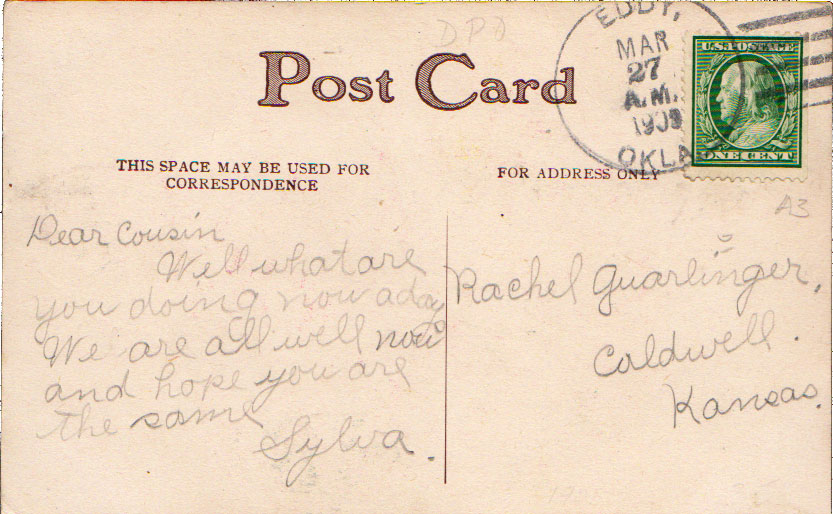 DPO
Post Card
EDDY,
MAR
27
A.M.
1909
OKLA
U.S. POSTAGE
ONE CENT
THIS SPACE MAY BE USED FOR
CORRESPONDENCE
FOR ADDRESS ONLY
A3
Dear Cousin
Well what are
you doing now a day
We are all well now
and hope you are
the same
Sylva.
Rachel Guarlinger,
Caldwell.
Kansas.